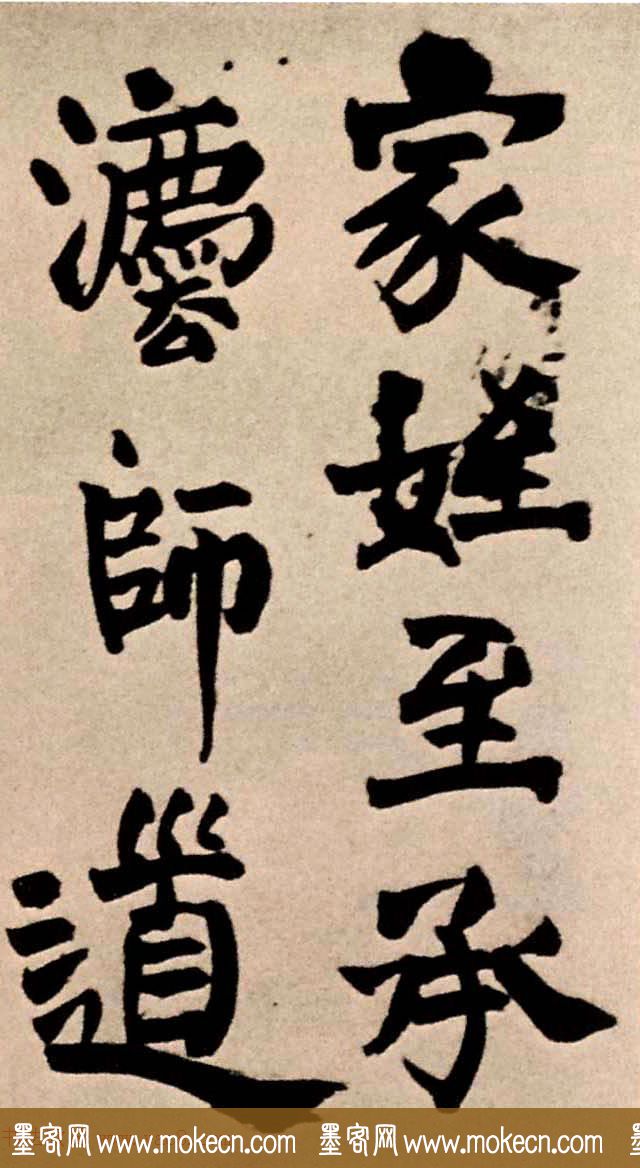 家姪至承
灋師道
墨客网 www.mokecn.com 墨客网 www.mokecn.com